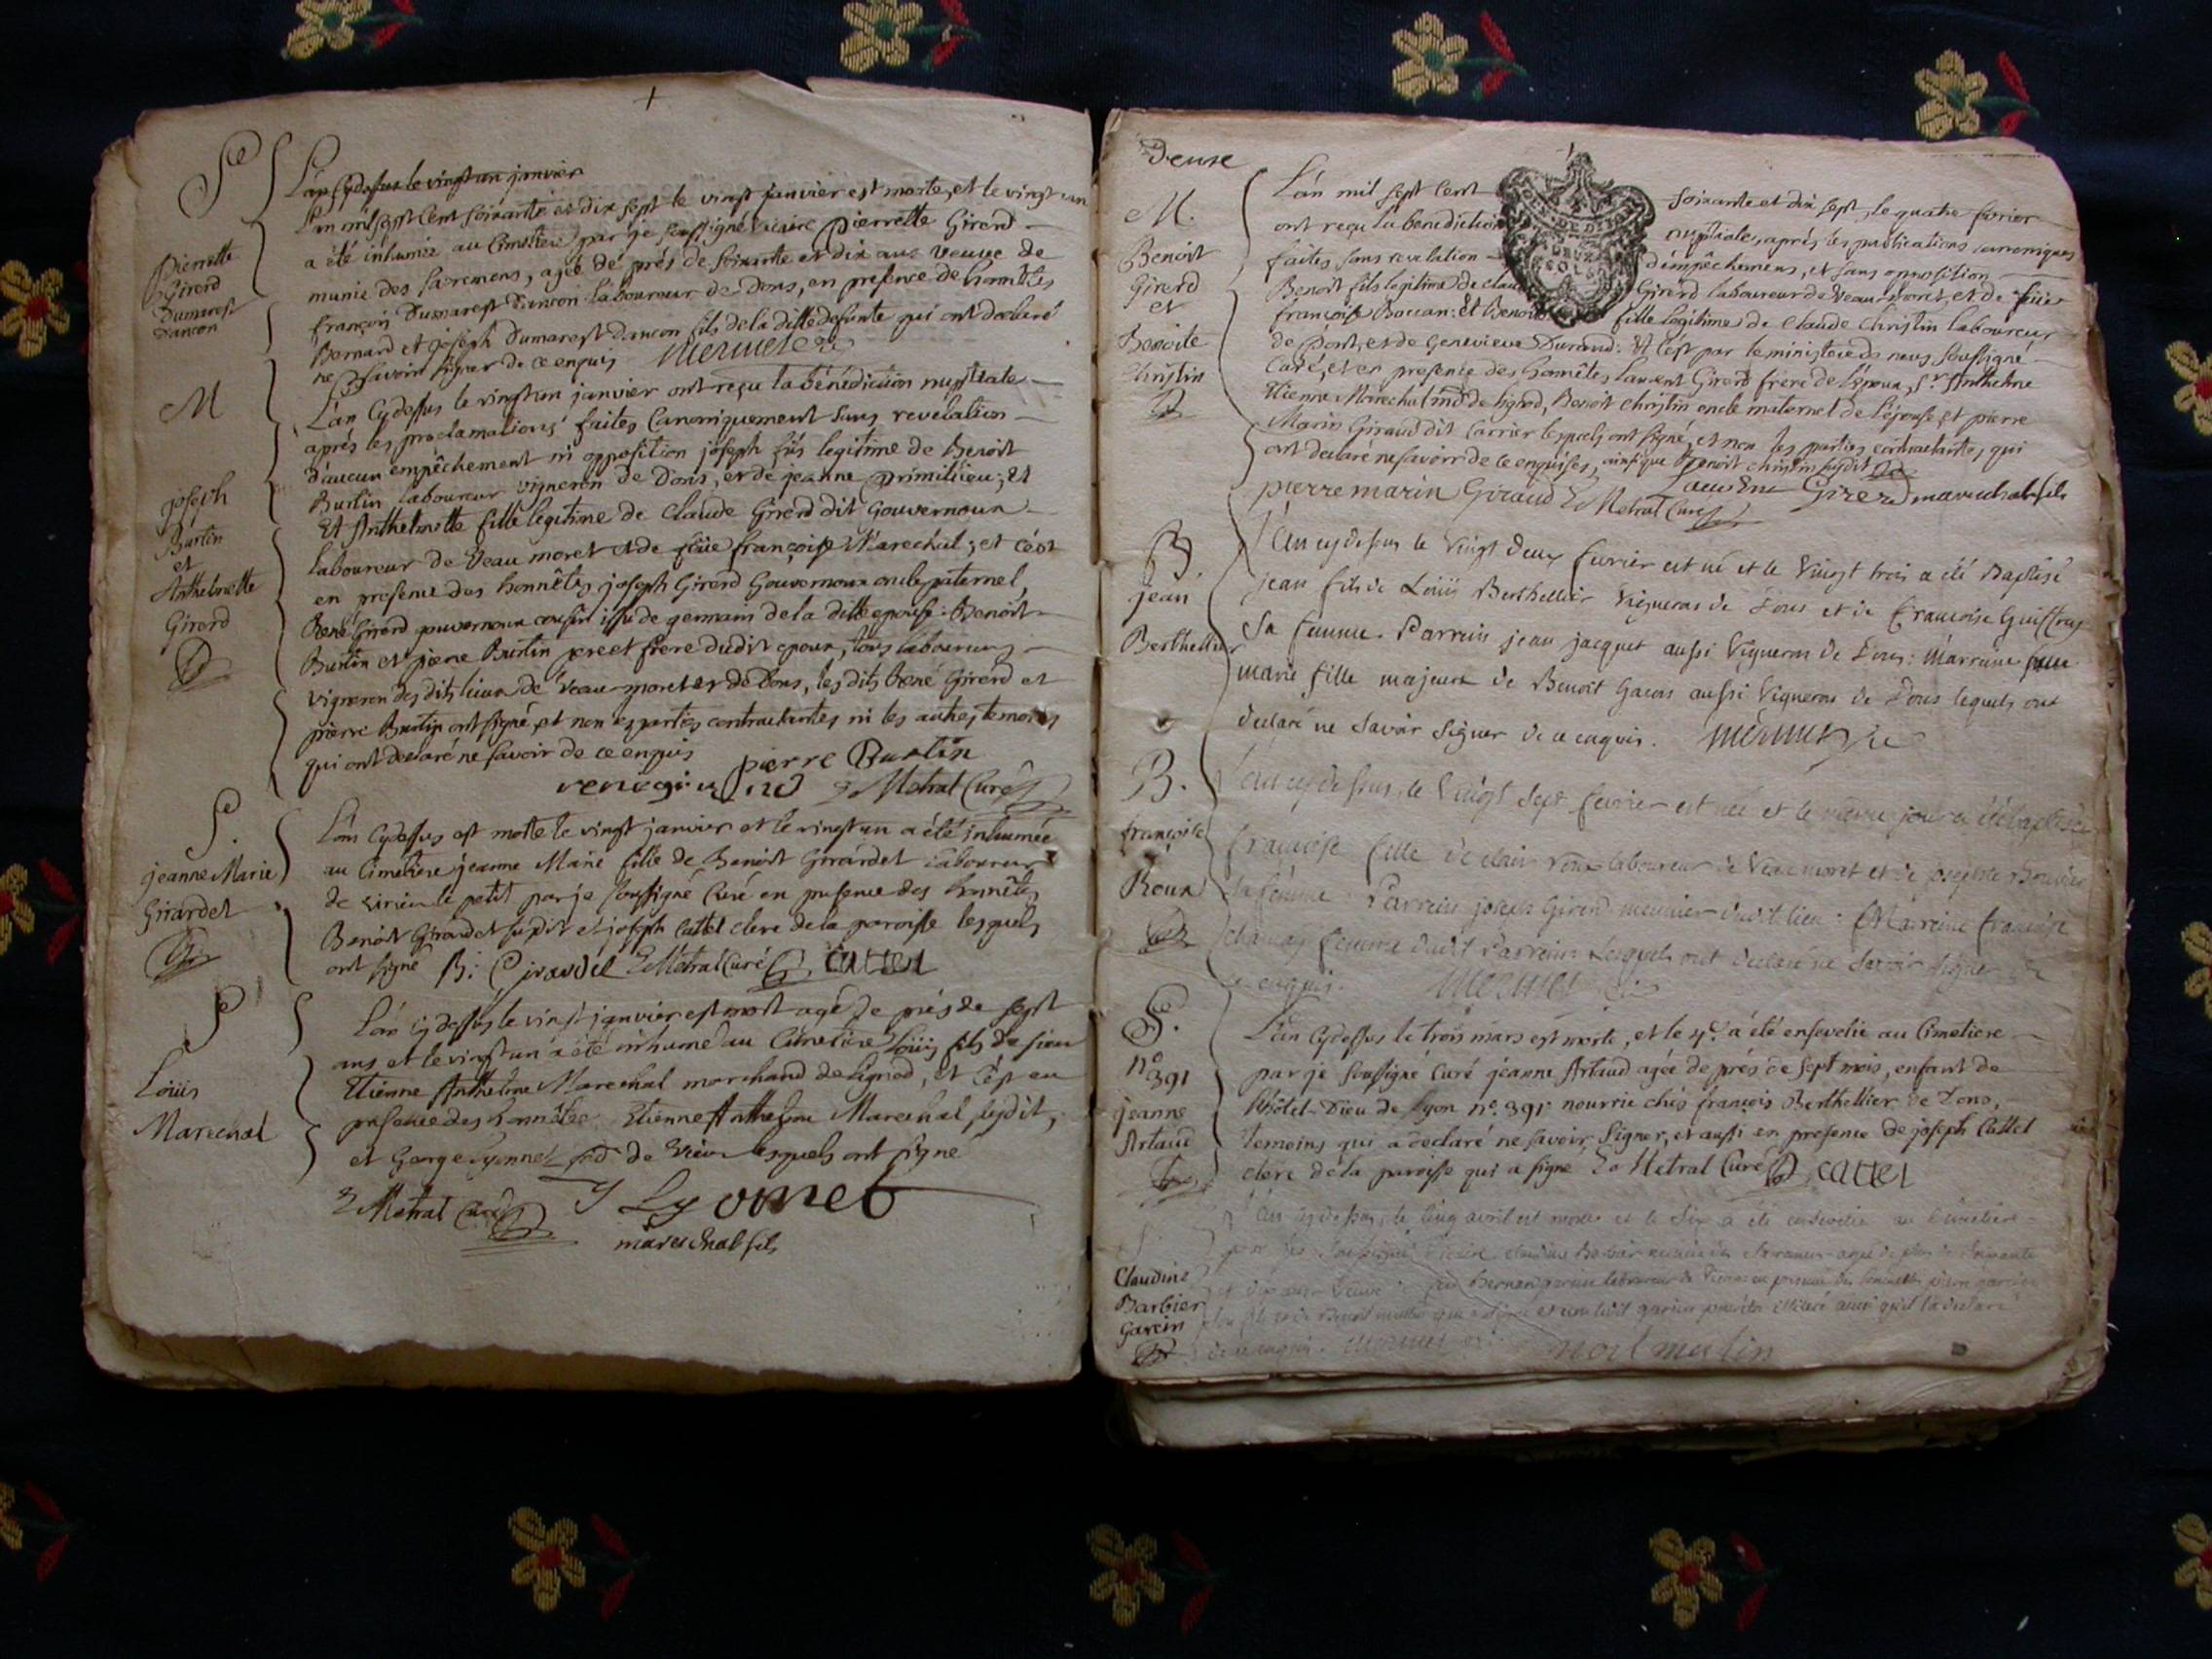 S.
Pierrette
Girerd
Dumarest
Dancon
L'an Cydessus le vingt un janvier
L'an mil sept cent soixante et dix sept le vingt janvier est morte, et le vingt un
a été inhumée au Cimetiere par je soussigné vicaire pierrette Girerd
munie des sacremens, agée de prés de soixante et dix ans veuve de
françois Dumarest Dancon laboureur de Dons, en presence de honnêtes
Bernard et joseph Dumarest dancon fils de la ditte defunte qui ont declaré
ne savoir signer de ce enquis Mermet vic
M
joseph
Burtin
et
Anthelmette
Girerd
L'an Cydessus le vingt un janvier ont reçu la bénédiction nuptiale
aprés les proclamations faites Canoniquement sans revelation
d'aucun empêchement ni opposition joseph fils legitime de Benoit
Burtin laboureur vigneron de Dons, et de jeanne primilieu; et
Et Anthelmette fille legitime de Claude Girerd dit Gouvernoux
laboureur de Veau moret et de feüe françoise Marechal; et c'est
en presence des honnêtes joseph Girerd Gouvernoux oncle paternel,
René Girerd gouvernoux cousin issu de germain de la ditte epouse: Benoit
Burtin et pierre Burtin pere et frere dudit epoux, tous laboureurs
vigneron des dits lieux de Veau-moret et de Dons, les dits René Girerd et
pierre Burtin ont signé, et non es parties contractantes ni les autres temoins
qui ont declaré ne savoir de ce enquis pierre Burtin
rene girerd Metral Curé
S.
jeanne Marie
Girardet
L'an Cydessus est morte le vingt janvier et le vingt un a été inhumée
au Cimetiere jeanne Marie fille de Benoit Girardet laboureur
de virieu le petit par je soussigné Curé en presence des honnêtes
Benoit Girardet susdit et joseph Cattet clerc de la paroisse lesquels
ont signé B: Girardet Metral Curé cattet
S
Loüis
Marechal
L'an cydessus le vingt janvier est mort agé de prés de sept
ans et le vingt un a été inhumé au Cimetiere Loüis fils de sieur
Etienne Anthelme Marechal marchand de Lignod, et c'est en
presence des honnêtes Etienne Anthelme Marechal susdit,
et George Lyonnet de Vieu lesquels ont signé
Metral Curé Lyonnet
mareschal fils
Deuse
M.
Benoit
Girerd
et
Benoite
Christin
L'an mil sept cent soixante et dix sept, le quatre fevrier
ont reçu la benediction nuptiale, aprés les publications canoniques
faites sans revelation d'empêchemens, et sans opposition
Benoit fils legitime de claude Girerd laboureur de Veau-moret, et de feüe
françoise Boccan: Et Benoite fille legitime de Claude Christin laboureur
de Pont, et de Genevieve Durand: Et c'est par le ministere de nous soussigné
Curé, et en presence des honnêtes laurent Girerd frere de l'epoux, Sr. Anthelme
Etienne Marechal md de lignod, Benoit christin oncle maternel de l'épouse, et pierre
Marin Giraud dit Carrier lesquels ont signé, et non les parties contractantes, qui
ont declaré ne savoir de ce enquises, ainsi que Benoit christin susdit
pierre marin Giraud Metral Curé Girerd mareschal fils
B
jean
Berthellier
L'an cydessus le vingt deux fevrier est né et le vingt trois a été Baptisé
jean fils de Loüis Berthellier vigneron de Dons et de Francoise Guiffray
sa femme. Parrain jean jacquet aussi vigneron de Dons: Marraine
marie fille majeure de Benoit Gacon aussi vigneron de Dons lequels ont
declaré ne savoir signer de ce enquis. Mermet vic
B.
françoise
Roux
L'an cydessus, le vingt sept fevrier est née et le meme jour a été baptisée
françoise fille de clair roux laboureur de Veau moret et de Bouvier
sa femme. Parrein joseph Girerd meunier dudit lieu: Marreine françoise
chamay femme dudit Parrein Lesquels ont declaré ne savoir signer de
ce enquis. Mermet vic
S.
n°
391
jeanne
Artaud
L'an Cydessus le trois mars est morte, et le 4e. a été ensevelie au Cimetiere
par je soussigné Curé jeanne Artaud agée de prés de sept mois, enfant de
l'hôtel-Dieu de Lyon n°. 391. nourrie chés françois Berthellier de Dons,
temoins qui a declaré ne savoir signer, et aussi en presence de joseph Cattet
clerc de la paroisse qui a signé Metral Curé cattet
S.
Claudine
Barbier
Garcin
L'an cydessus, le cinq avril est morte et le six a été ensevelie au Cimetiere
par je soussigné vicaire claudine Barbier munie des sacremens agée de plus de soixante
et dix ans veuve de feu Bernard garcin laboureur de en presence des honnetes pierre garcin
son fils et de Benoit qui a signé et non ledit garcin pour etre illiteré ainsi qu'il l'a declaré
de ce enquis. Mermet vic